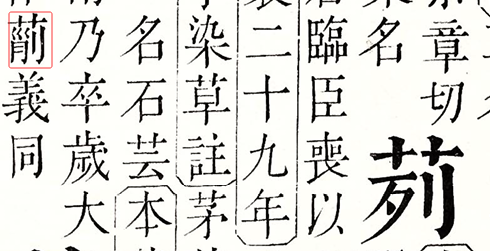 章切
茢
名
臨臣喪以
二十九年
染草註茅
名石芸本
乃卒歲大
義同